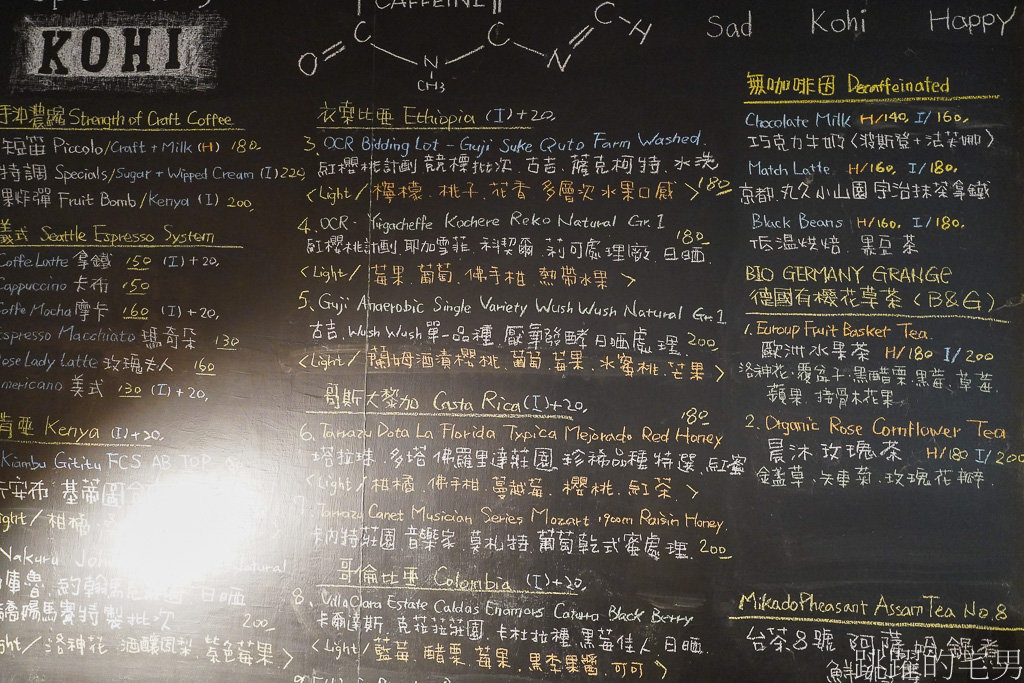 KOHI
CAFFEINE
O C N CH3 C N C H
Sad Kohi Happy
Strength of Craft Coffee
短笛 Piccolo/Craft + Milk (H) 180
特調 Specials/Sugar + Wipped Cream (I) 220
果炸彈 Fruit Bomb/Kenya (I) 200
義式 Seattle Espresso System
Coffe Latte 拿鐵 150 (I)+20,
Cappuccino 卡布 150
Coffe Mocha 摩卡 160 (I)+20,
Espresso Macchiato 瑪奇朵 130
Rose Lady Latte 玫瑰夫人 160
Americano 美式 130 (I)+20,
肯亞 Kenya (I)+20,
Kiambu Gititu FCS AB TOP
安布 基蒂圖
Light/柑橘
Nakuru
魯 約翰 日曬
陽馬賽特製批次
200
Light/洛神花 酒釀鳳梨 紫色莓果 〉
衣索比亞 Ethiopia (I)+20,
3. OCR Bidding Lot - Guji Suke Quto Farm Washed.
紅櫻桃計劃 競標批次.古吉.薩克柯特.水洗
<Light/檸檬.桃子.花香.多層次水果口感〉180
4. OCR- Yirgacheffe Kochere Reko Natural Gr.1
180
紅櫻桃計劃.耶加雪菲.科契爾.莉可處理廠.日曬
<Light/莓果.葡萄.佛手柑.熱帶水果 〉
5. Guji Anaerobic Single Variety Wush Wush Natural Gr.1
古吉.Wush Wush單一品種.厭氧發酵日曬處理. 200
<Light/蘭姆酒漬櫻桃.葡萄.莓果.水蜜桃.芒果 〉
哥斯大黎加 Costa Rica (I)+20,
180
6. Tarrazu Dota La Florida Typica Mejorado Red Honey
塔拉珠.多塔.佛羅里達莊園.珍稀品種特選.紅蜜
<Light/柑橘.佛手柑.蔓越莓.櫻桃.紅茶 〉
7. Tarrazu Canet Musician Series Mozart 1900m Raisin Honey.
卡內特莊園.音樂家.莫札特.葡萄乾式蜜處理. 200
哥倫比亞 Colombia (I)+20,
8. Villa Clara Estate Caldas Enamors Caturra Black Berry
卡爾達斯.克菈菈莊園.卡杜拉種.黑莓佳人.日曬
<Light/藍莓.醋栗.莓果.黑李果醬.可可 〉
無咖啡因 Decaffeinated
Chocolate Milk H/140, I/160,
巧克力牛奶〈波斯登+法芙娜〉
Match Latte H/160, I/180,
京都.丸久小山園 宇治抹茶拿鐵
Black Beans H/160, I/180,
低溫烘焙.黑豆茶
BIO GERMANY GRANGE
德國有機花草茶 (B&G)
1. Euroup Fruit Basket Tea.
歐洲水果茶 H/180 I/200
洛神花.覆盆子.黑醋栗.黑莓.草莓.
蘋果.接骨木花果
2. Organic Rose Cornflower Tea
晨沐玫瑰茶 H/180 I/200
金盞草.矢車菊.玫瑰花瓣
Mikado Pheasant Assam Tea No.8
台茶8號 阿薩姆
鮮
跳躍的宅男